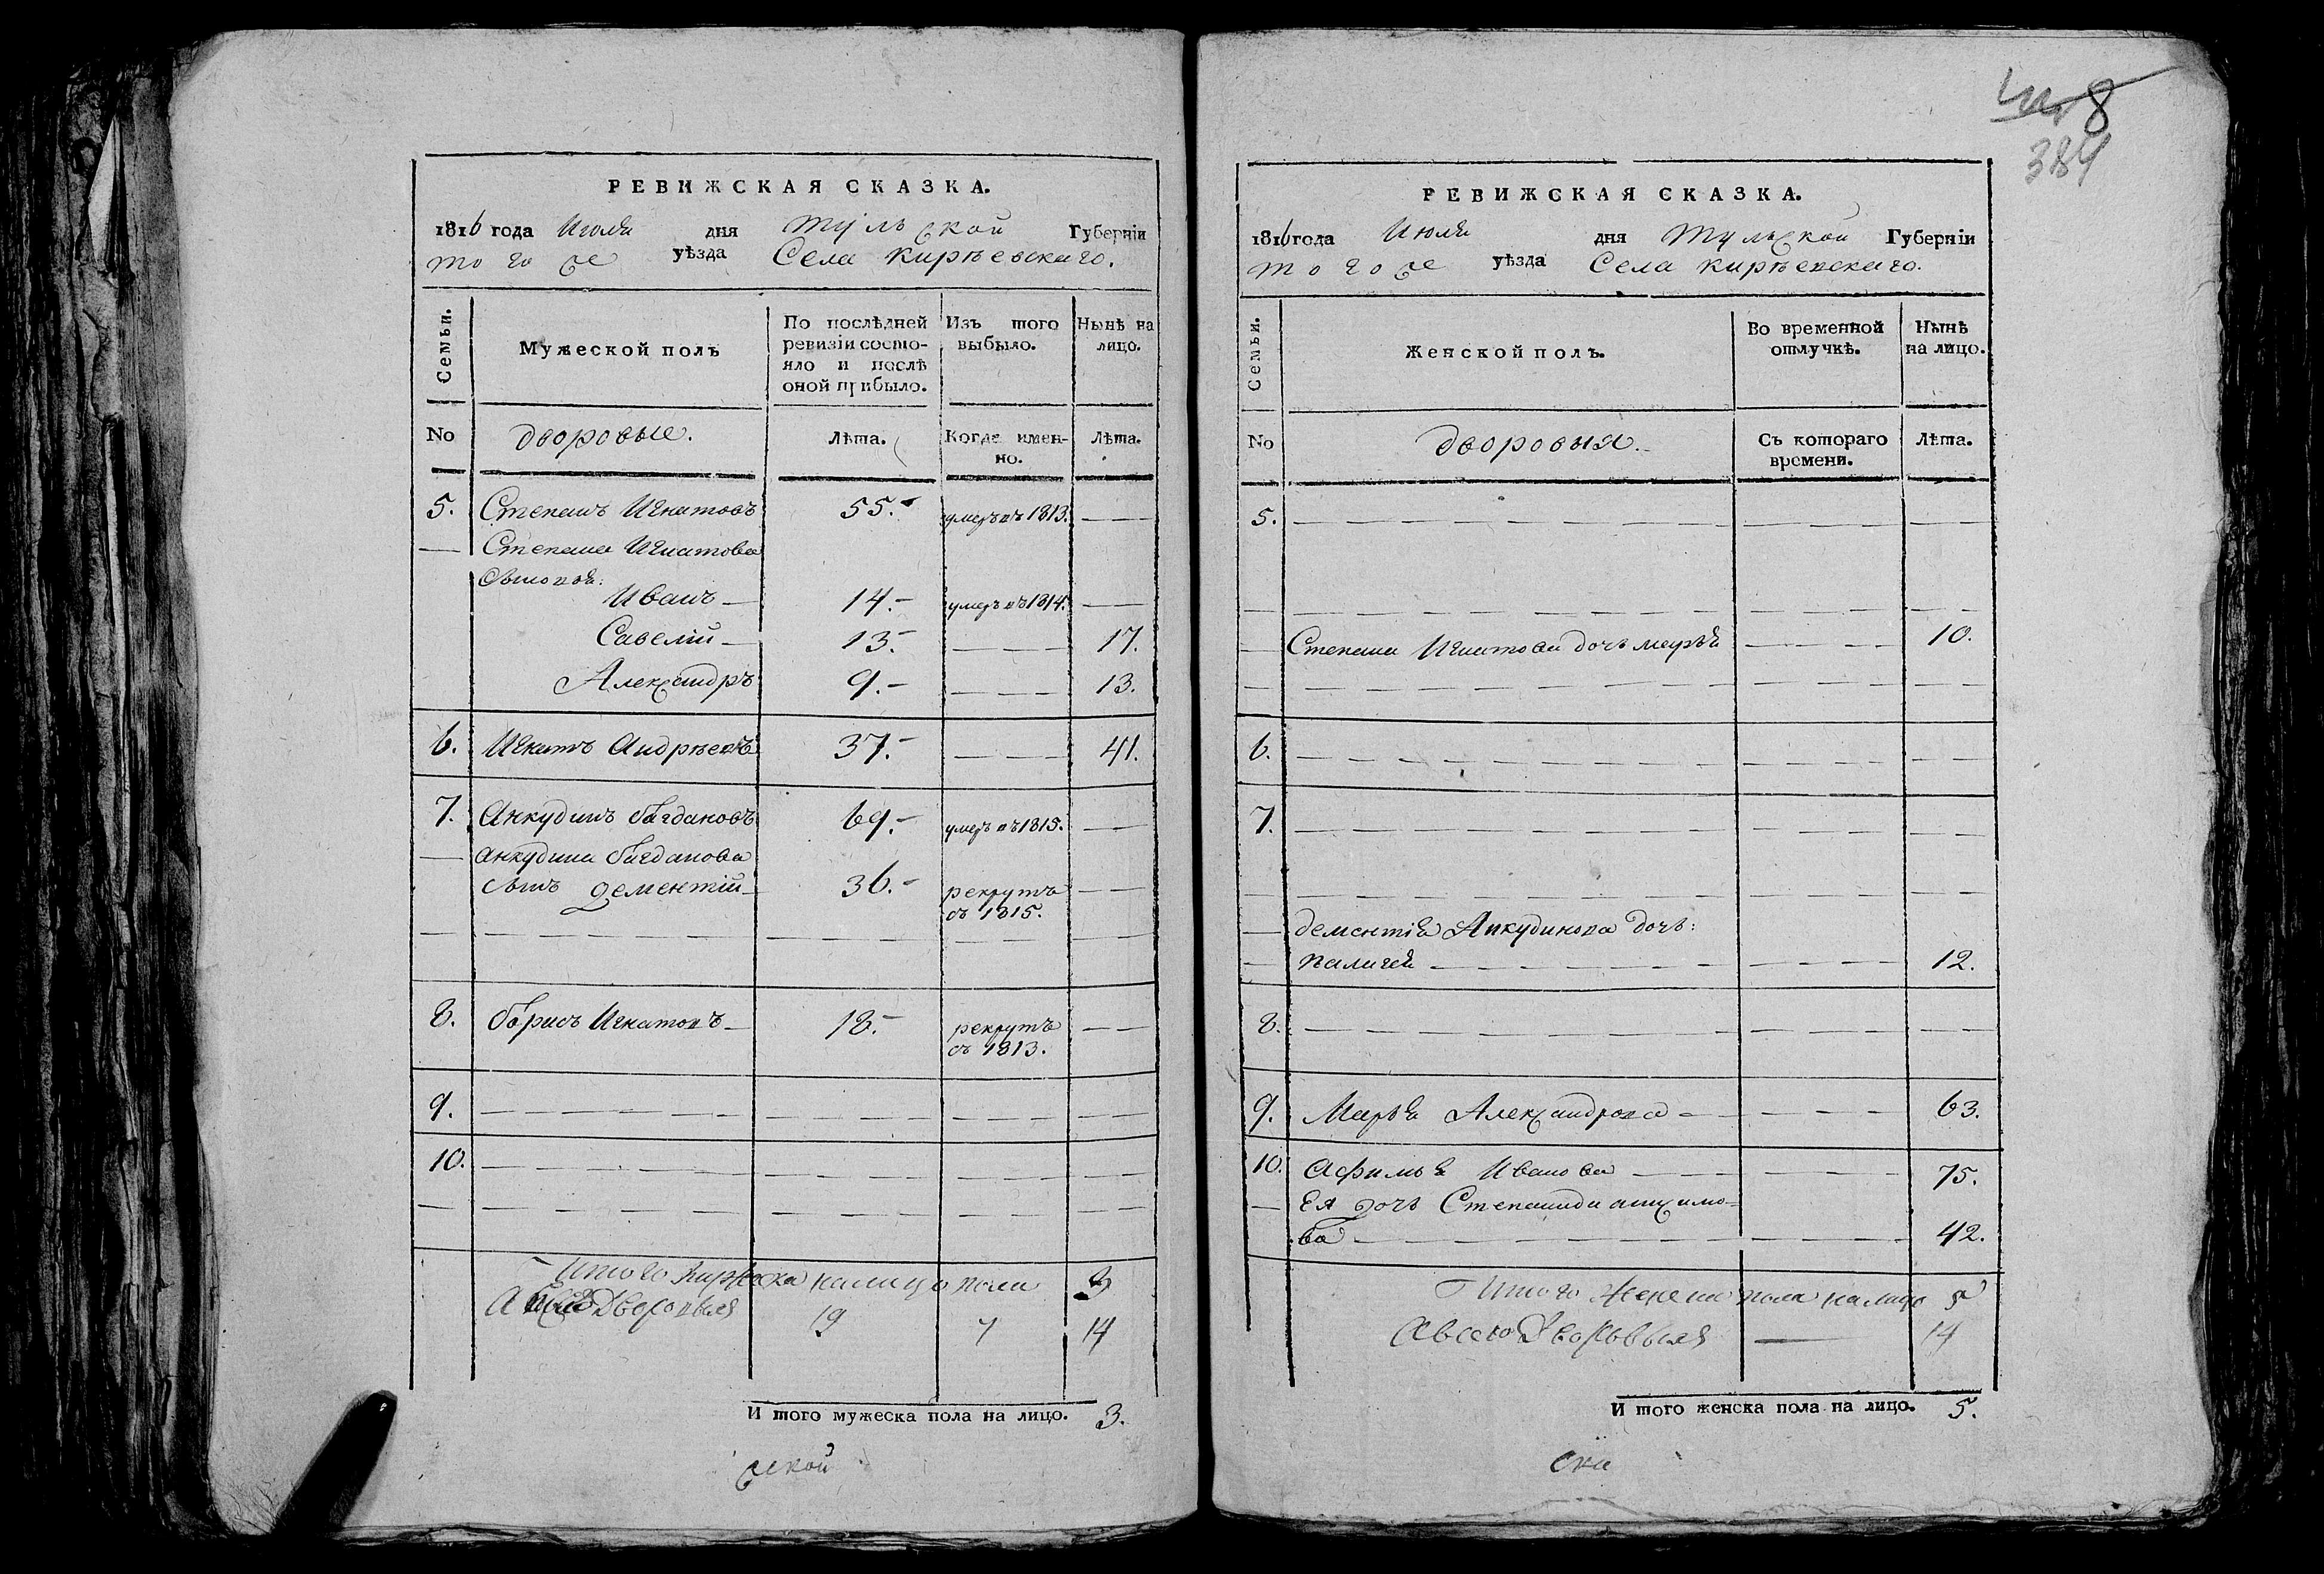 РЕВИЖСКАЯ СКАЗКА.
1816 года Июля дня Тульской Губерніи
того же уѣзда Села Кирѣевскаго.
Семьи.
Мужеской полъ
По послѣдней ревизіи состояло и послѣ оной прибыло.
Изъ того выбыло.
Нынѣ на лицо.
No
дворовые.
Лѣта.
Когда именно.
Лѣта.
5. Степанъ Игнатовъ 55. умеръ въ 1813.
Степана Игнатова
сыновья:
Иванъ 14. умеръ въ 1814.
Савелій 13. 17.
Александръ 9. 13.
6. Игнатъ Андрѣевъ 37. 41.
7. Анкудинъ Багдановъ 69. умеръ въ 1815.
Анкудина Багданова
сынъ Дементій 36. рекрутъ
съ 1815.
8. Борисъ Игнатовъ 18. рекрутъ
съ 1813.
9.
10.
Итого мужеска налицо пола 3
Дворовыя 19 7 14
И того мужеска пола на лицо. 3.
ской
8
384
РЕВИЖСКАЯ СКАЗКА.
1816 года Июля дня Тульской Губерніи
того же уѣзда Села Кирѣевскаго.
Семьи.
Женской полъ.
Во временной отлучкѣ.
Нынѣ на лицо.
No
дворовыя.
Съ котораго времени.
Лѣта.
5.
Степана Игнатова дочь Марья 10.
6.
7.
Дементія Анкудинова дочь:
12.
8.
9. Марья Александрова 63.
10. Афимья Иванова 75.
Ея дочь Степанида
ва 42.
Итого женска пола налицо 5
А всего Дворовыя 14
И того женска пола на лицо. 5.
ска